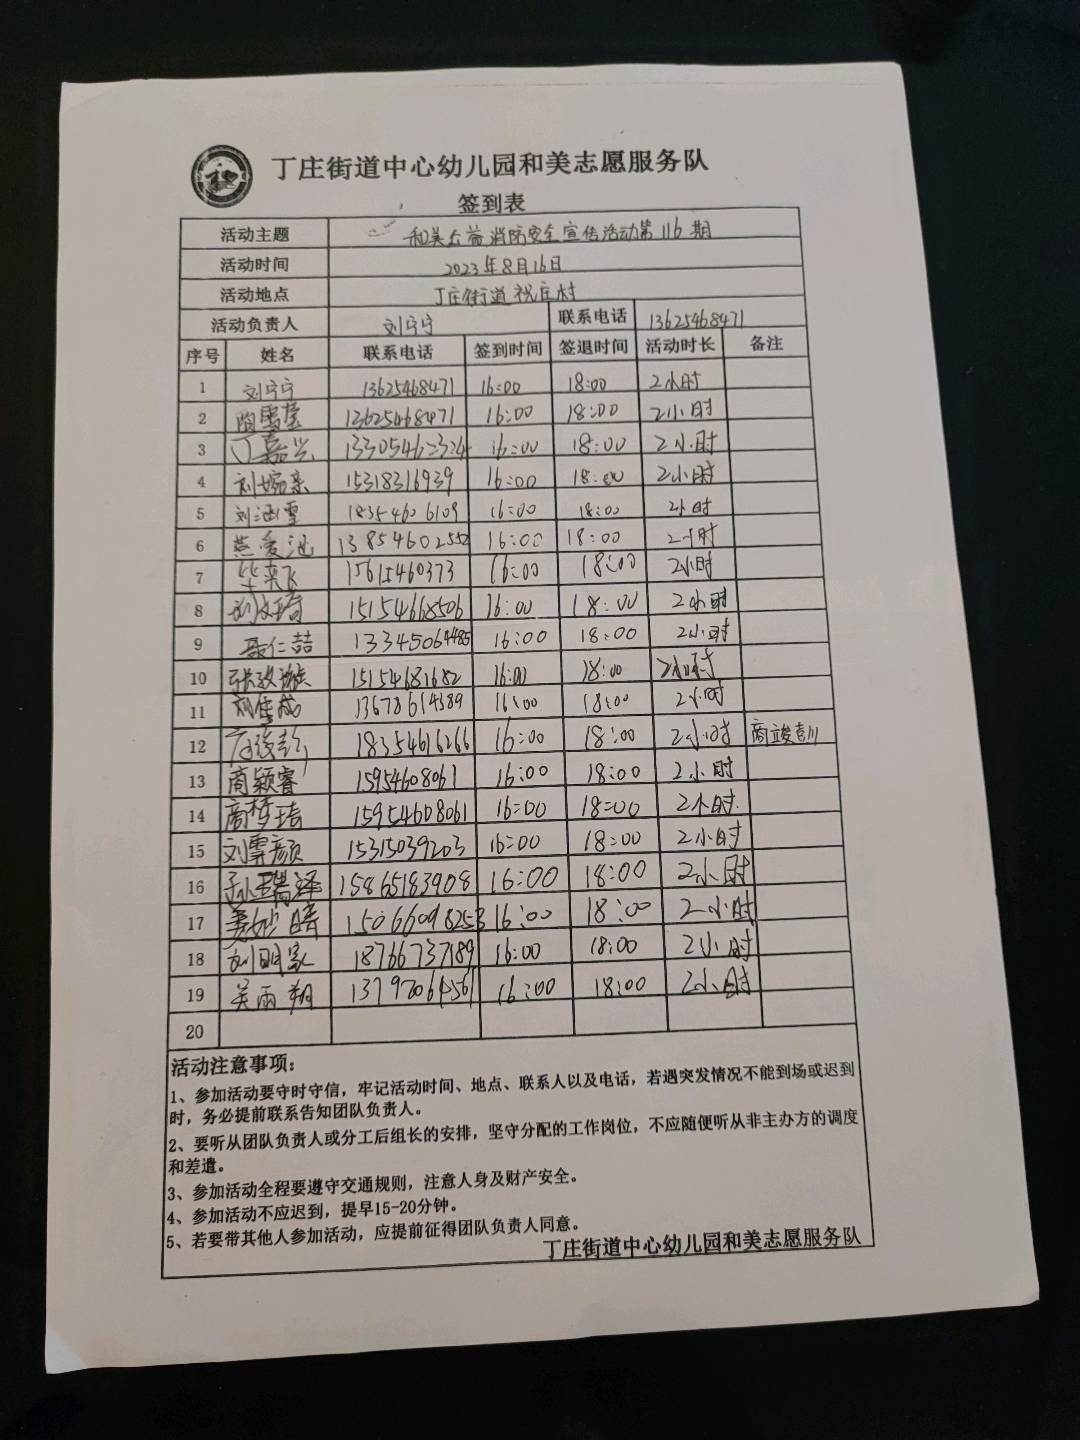 丁庄街道中心幼儿园和美志愿服务队
签到表
活动主题 和美公益消防安全宣传活动第116期
活动时间 2023年8月16日
活动地点 丁庄街道祝庄村
活动负责人 刘宁宁 联系电话 13625468471
序号 姓名 联系电话 签到时间 签退时间 活动时长 备注
1 刘宁宁 13625468471 16:00 18:00 2小时
2 13625468471 16:00 18:00 2小时
3 丁嘉兴 16:00 18:00 2小时
4 刘婉亲 15318316939 16:00 18:00 2小时
5 刘涵雪 18354606109 16:00 18:00 2小时
6 燕爱池 13854602552 16:00 18:00 2小时
7 毕奕飞 15615460373 16:00 18:00 2小时
8 刘文琦 15154668506 16:00 18:00 2小时
9 聂仁喆 16:00 18:00 2小时
10 15154681682 16:00 18:00 2小时
11 刘佳成 13678614389 16:00 18:00 2小时
12 18354616266 16:00 18:00 2小时 商竣川
13 商颖睿 15954608061 16:00 18:00 2小时
14 商梦琦 15954608061 16:00 18:00 2小时
15 刘雪颜 15315039203 16:00 18:00 2小时
16 孙瑞泽 15865183908 16:00 18:00 2小时
17 妙晴 15066098253 16:00 18:00 2小时
18 刘明家 18766737189 16:00 18:00 2小时
19 吴雨翔 13792064561 16:00 18:00 2小时
20
活动注意事项：
1、参加活动要守时守信，牢记活动时间、地点、联系人以及电话，若遇突发情况不能到场或迟到
时，务必提前联系告知团队负责人。
2、要听从团队负责人或分工后组长的安排，坚守分配的工作岗位，不应随便听从非主办方的调度
和差遣。
3、参加活动全程要遵守交通规则，注意人身及财产安全。
4、参加活动不应迟到，提早15-20分钟。
5、若要带其他人参加活动，应提前征得团队负责人同意。
丁庄街道中心幼儿园和美志愿服务队